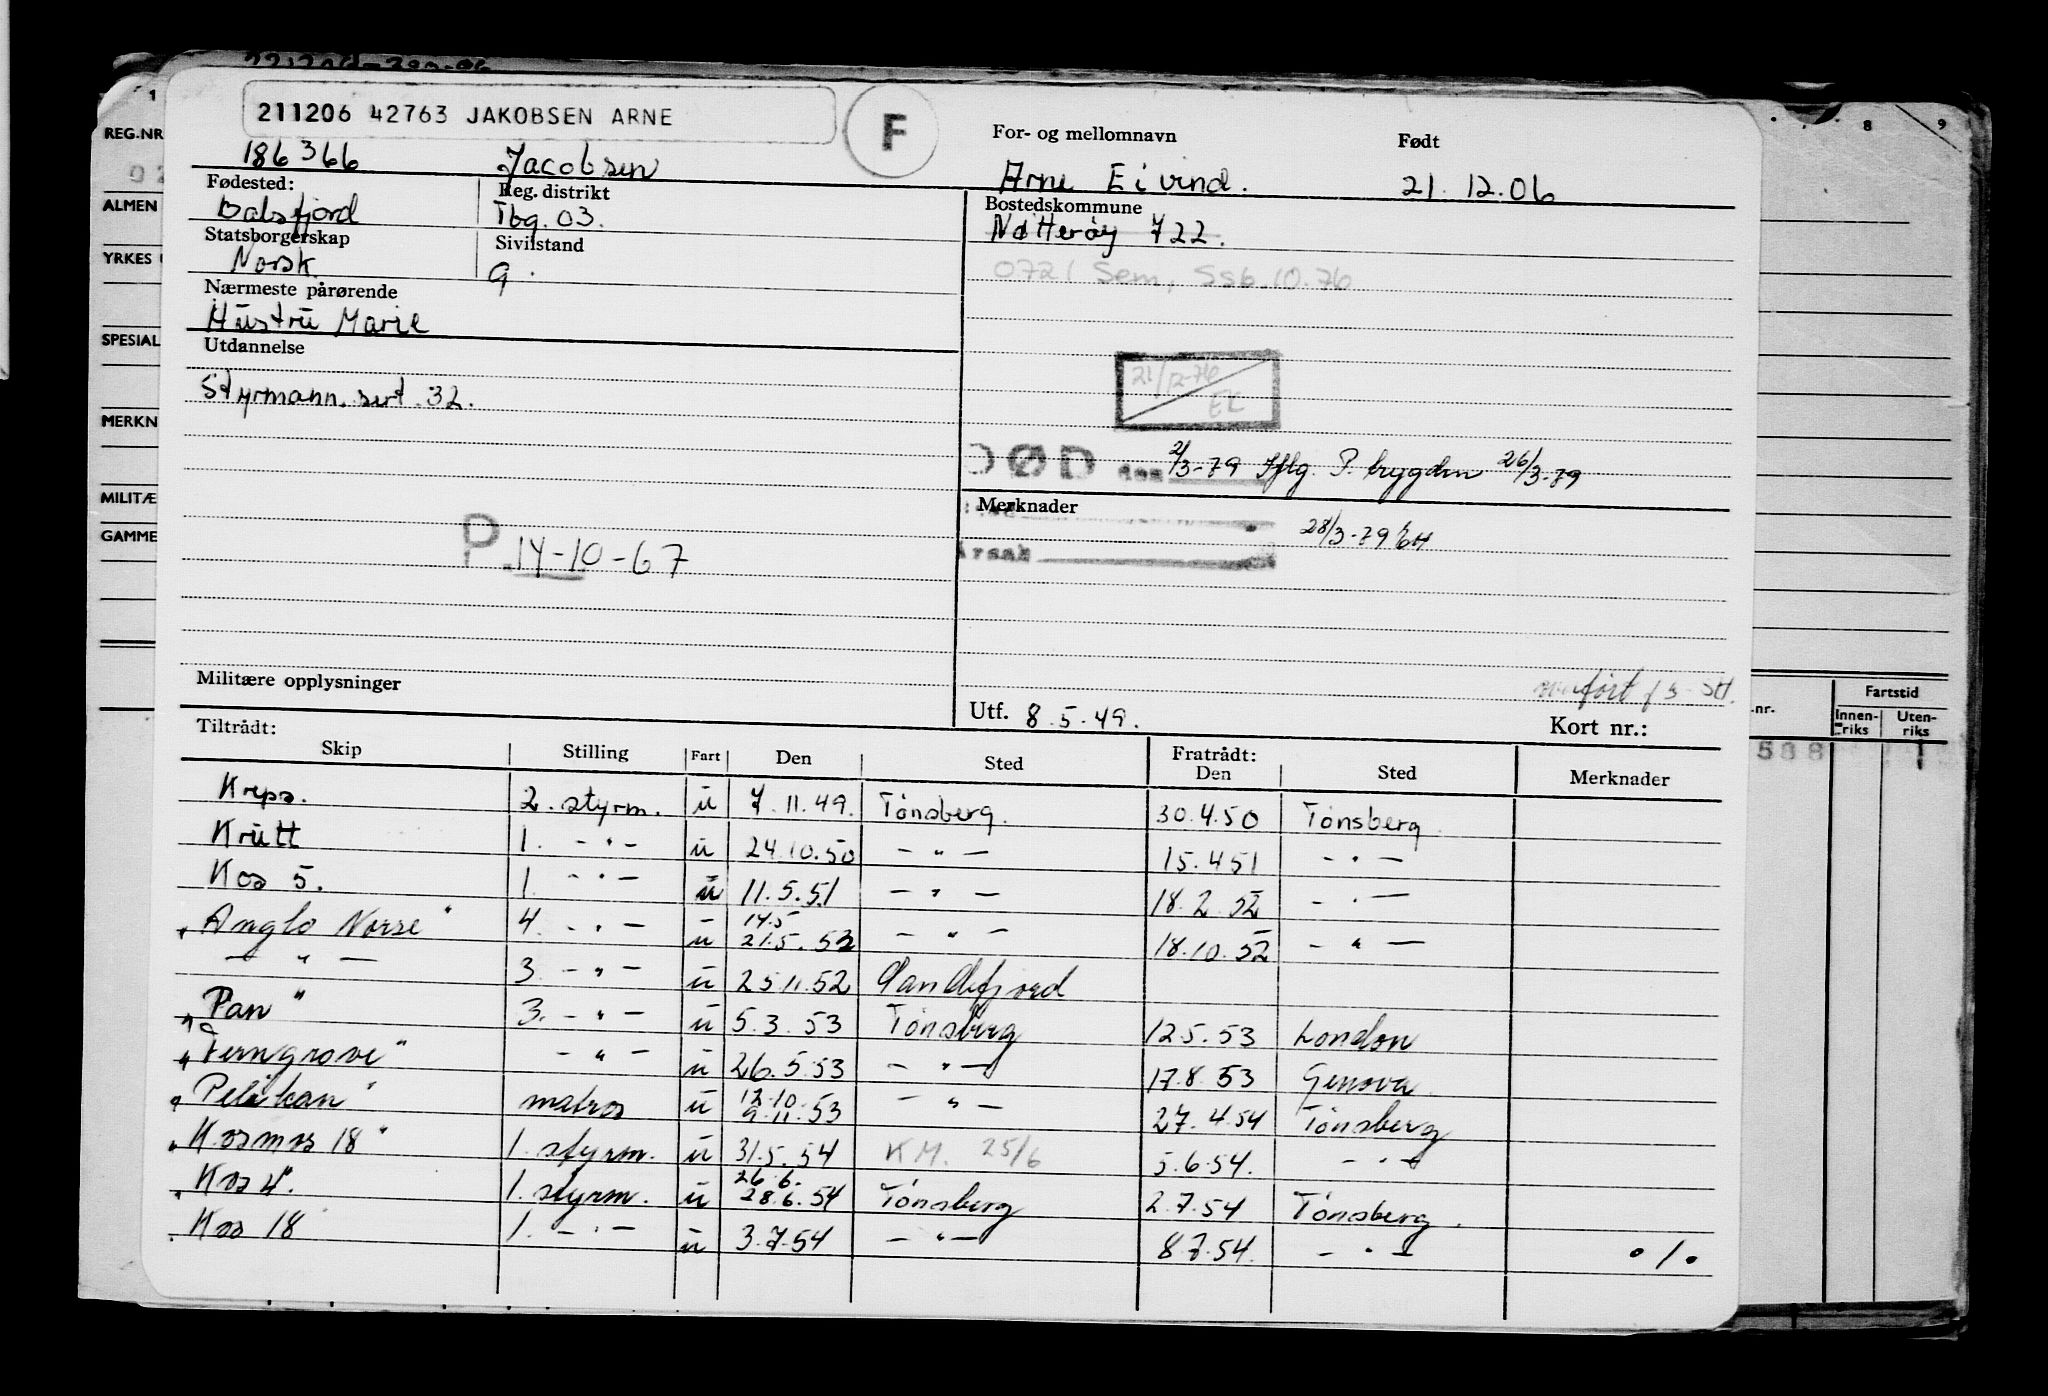 211206 42763 JAKOBSEN ARNE
F
186366 Jacobsen
For- og mellomnavn
Arne Eivind.
Født
21.12.06
Fødested:
Balsfjord
Reg. distrikt
Tbg. 03.
Bostedskommune
Nøtterøy 722.
0721 Sem, Ssb. 10.76
Statsborgerskap
Norsk.
Sivilstand
g.
Nærmeste pårørende
Hustru Marie
Utdannelse
Styrmann.sert.32.
21/12-76
EK
DØD den 2/3-79 Iflg. P. trygden 26/3-79
Merknader
28/3-79 EH
Årsak
P. 14-10-67
Militære opplysninger
Utf. 8.5.49.
Kort nr.:
Tiltrådt:
Skip Stilling Fart Den Sted Fratrådt: Den Sted Merknader
Kreps. 2. styrm. u 7.11.49. Tønsberg. 30.4.50 Tønsberg.
Krutt 1. -"- u 24.10.50 -"- 15.4.51 -"-
Kos 5. 1. -"- u 11.5.51 -"- 18.2.52 -"-
"Anglo Norse" 4. -"- u 14.5 21.5.52 -"- 18.10.52 -"-
-"- 3. -"- u 25.11.52 Sandefjord
"Pan" 3. -"- u 5.3.53 Tønsberg 12.5.53 London
"Ferngrove" -"- u 26.5.53 -"- 17.8.53 Genova
"Pelikan" matros u 12.10. 9.11.53 -"- 27.4.54 Tønsberg
"Kosmos 18" 1. styrm. u 31.5.54 KM. 25/6 5.6.54. -"-
"Kos 4". 1. styrm. u 26.6. 28.6.54 Tønsberg 2.7.54 Tønsberg.
"Kos 18 1. -"- u 3.7.54 -"- 8.7.54. -"- ./.
1
REG.NR
02
ALMEN
YRKES
SPESIAL
MERKN
MILITÆ
GAMME
8
9
.nr.
Fartstid
Innen-riks
Uten-riks
588
1